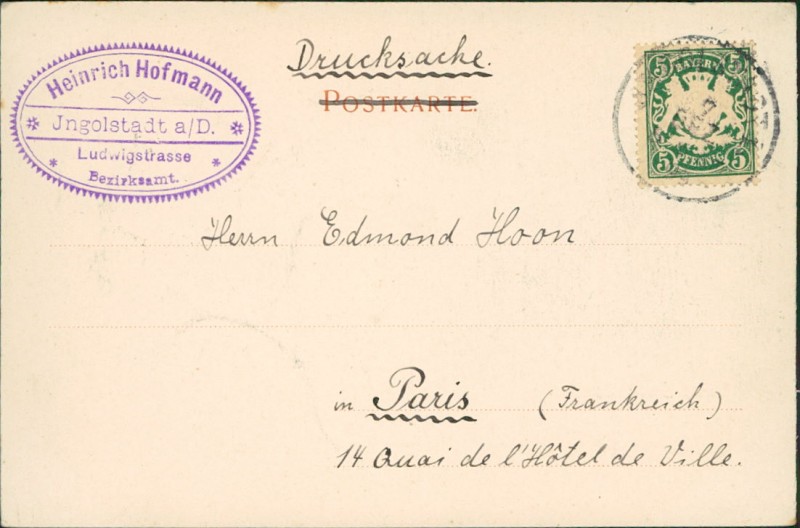 Heinrich Hofmann
Jngolstadt a/D.
Ludwigstrasse
Bezirksamt.
Drucksache.
POSTKARTE.
5 BAYERN 5
5 PFENNIG 5
Herrn Edmond Hoon
in Paris (Frankreich)
14 Quai de l'Hôtel de Ville.